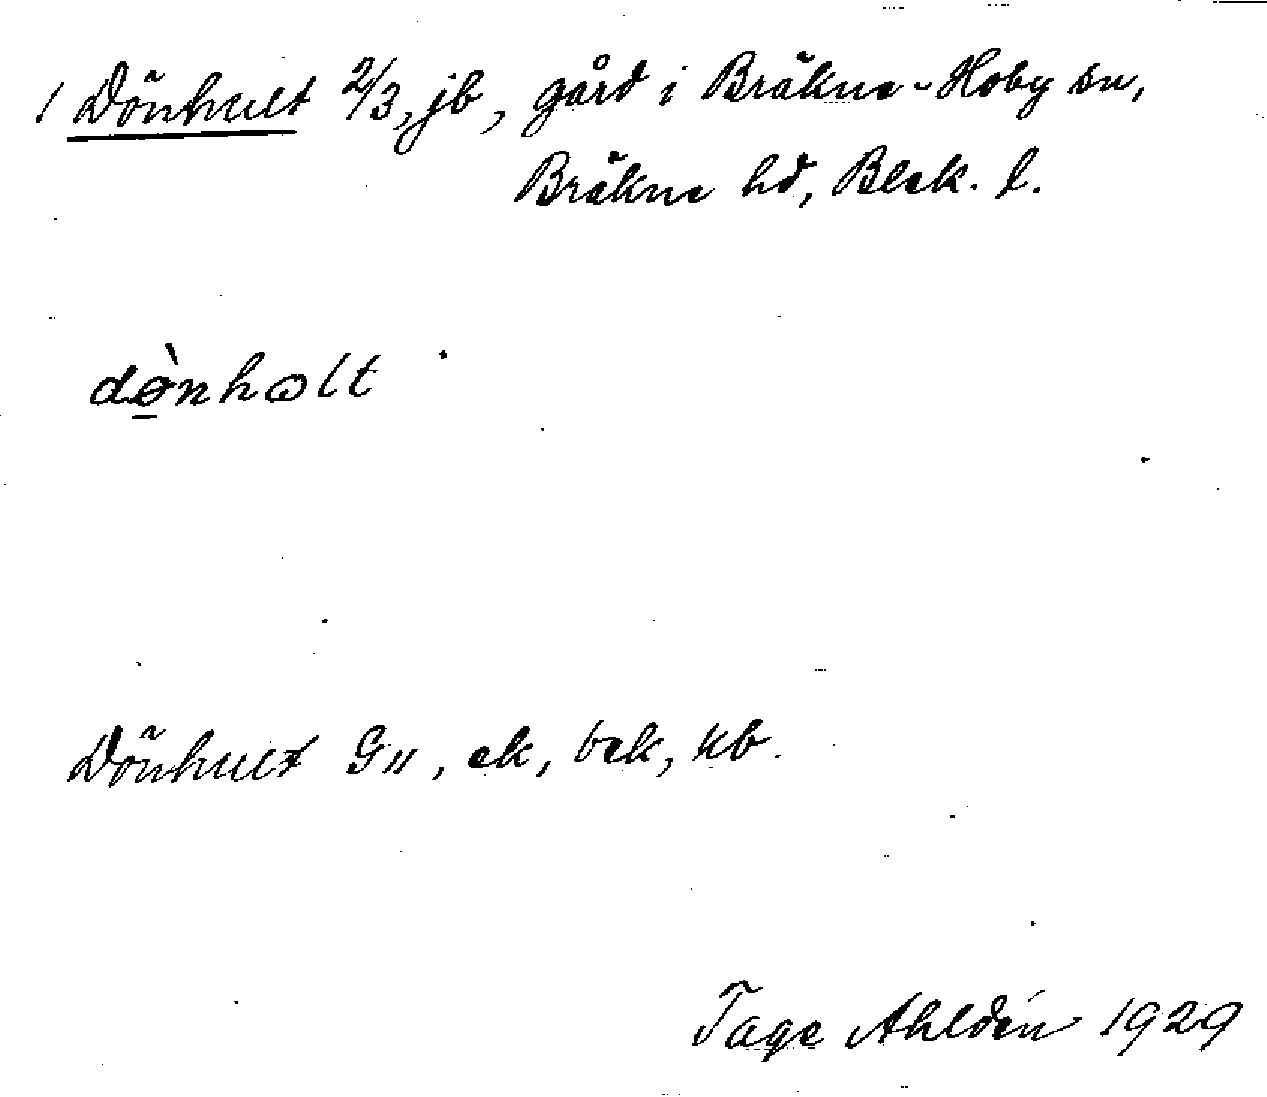 / Dönhult 2/3, jb, gård i Bräkne-Hoby sn,
Bräkne hd, Blek. l.
dø̠̀nhɷlt
Dönhult G11, ek, bek, kb.
Tage Ahldén 1929